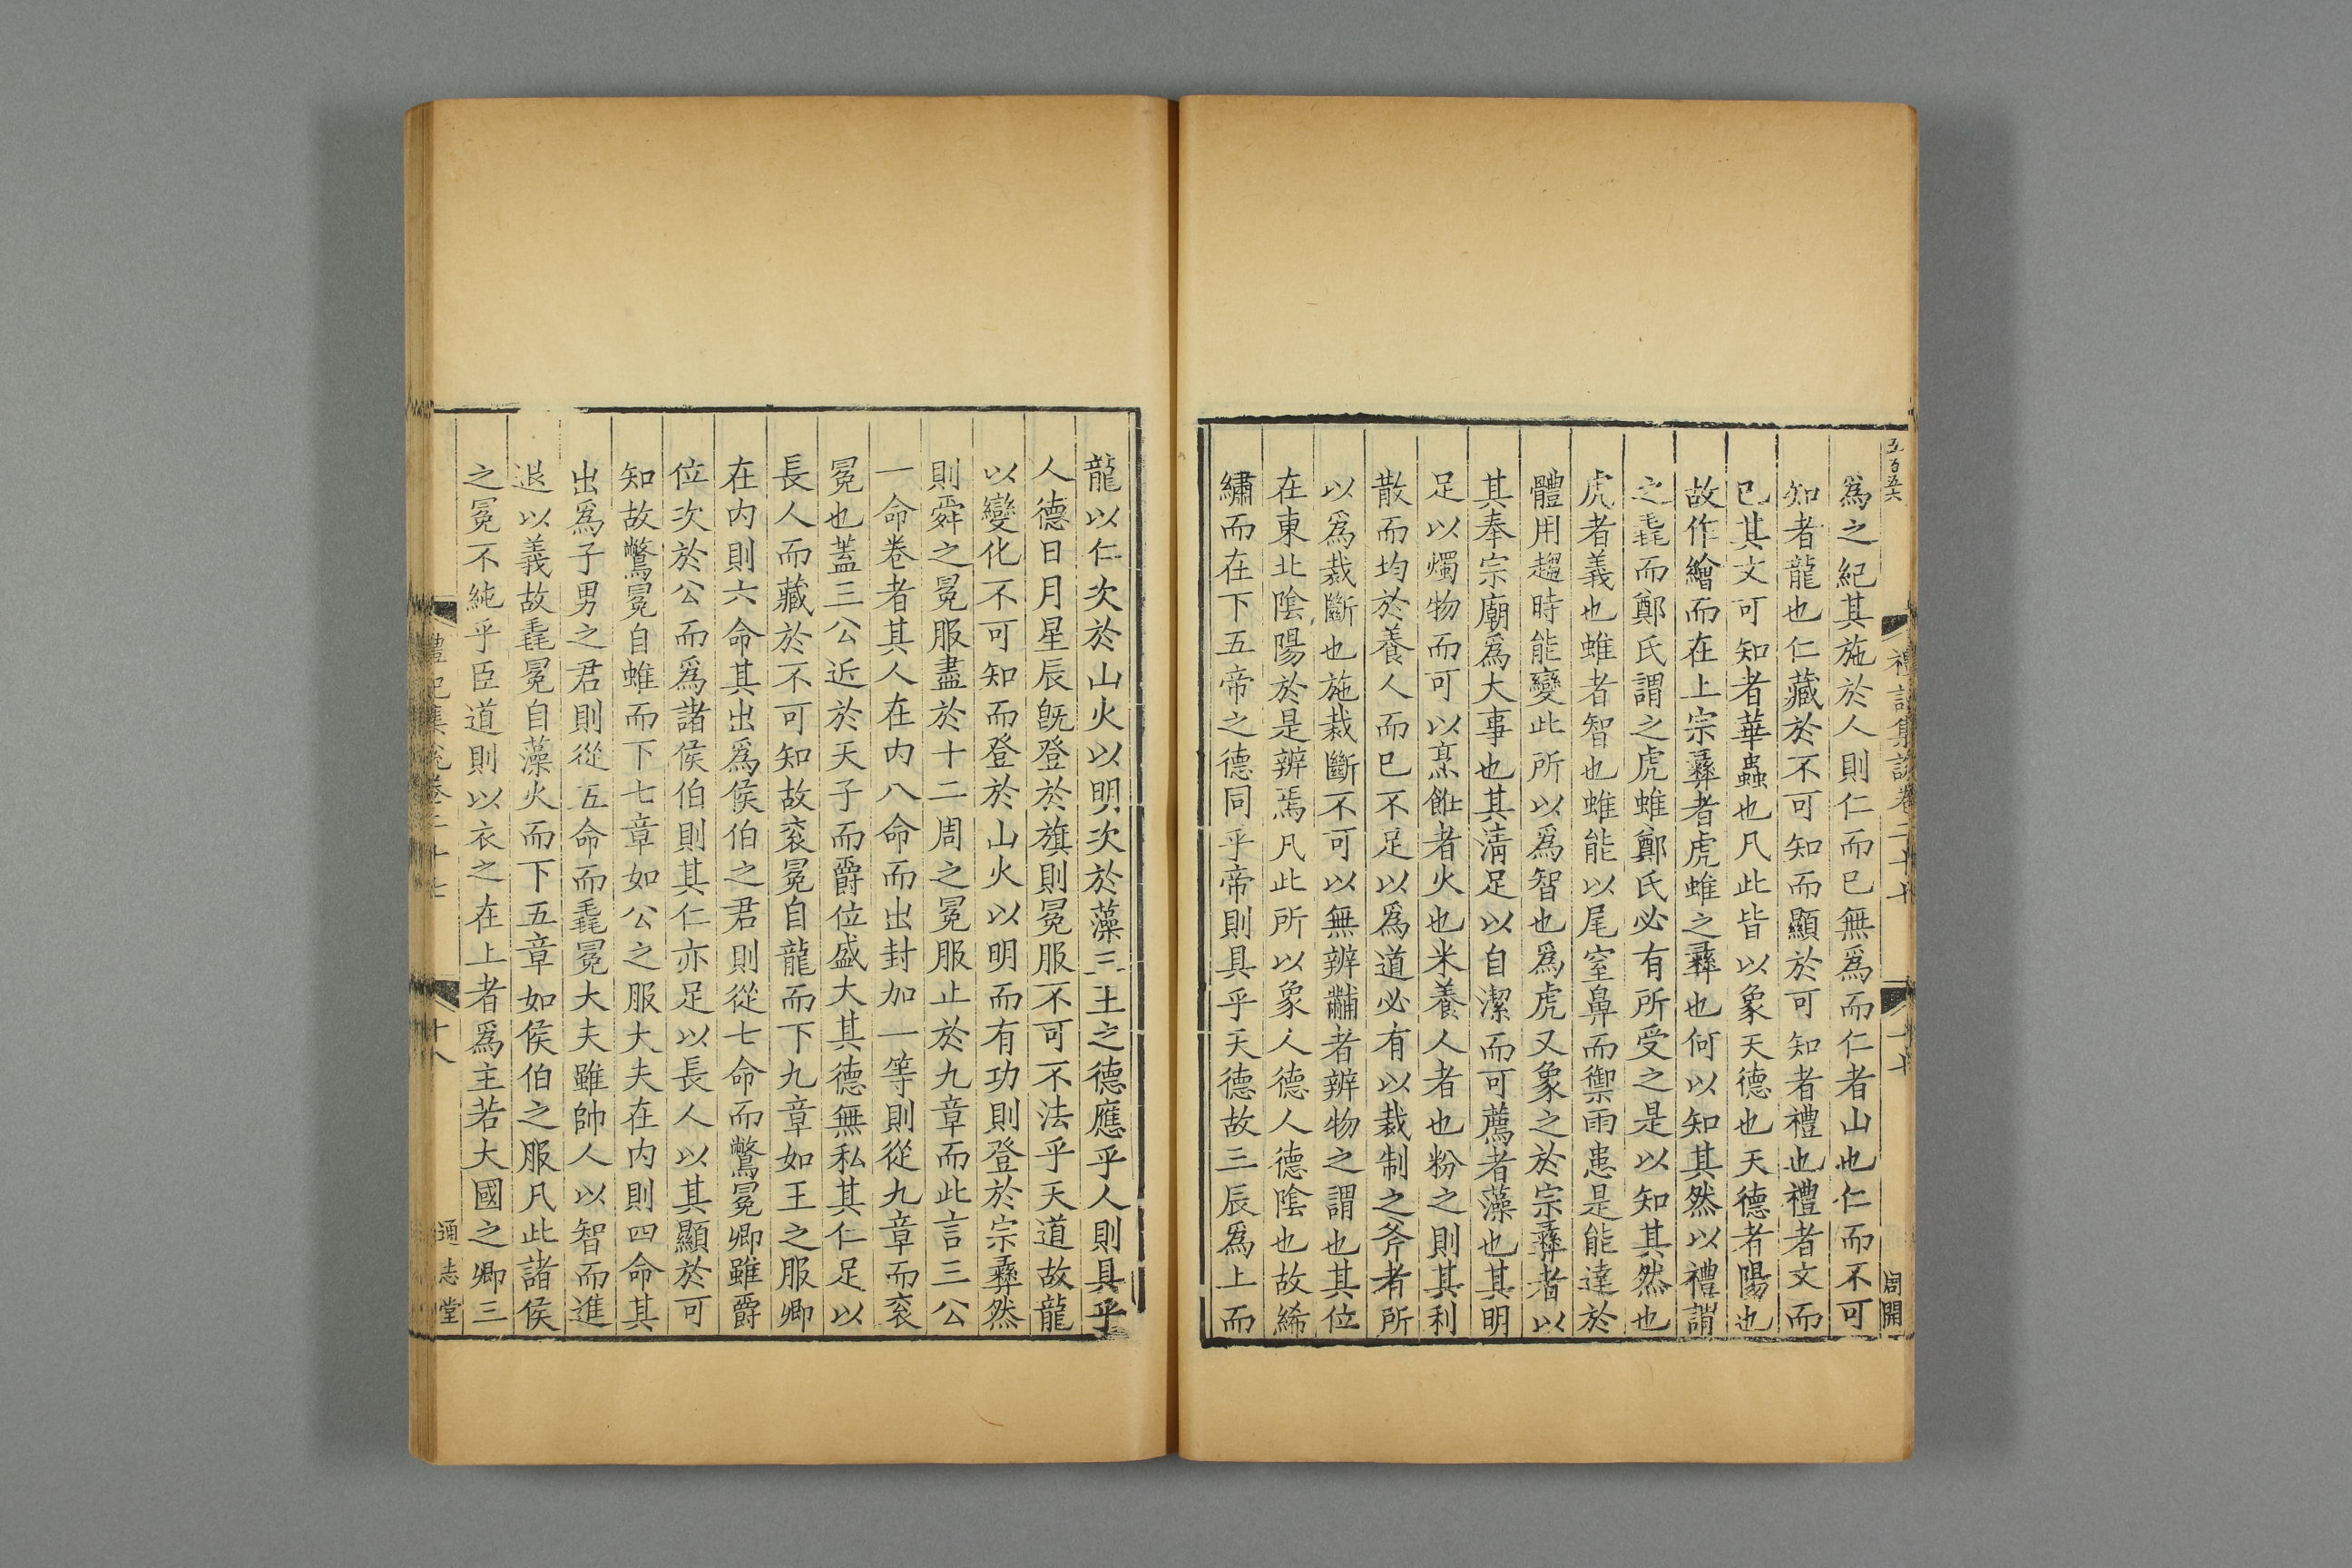 五百五六
禮記集說卷二十七
十七
周開
爲之紀其施於人則仁而已無爲而仁者山也仁而不可
知者龍也仁藏於不可知而顯於可知者禮也禮者文而
已其文可知者華蟲也凡此皆以象天德也天德者陽也
故作繪而在上宗彝者虎蜼之彝也何以知其然以禮謂
之毳而鄭氏謂之虎蜼鄭氏必有所受之是以知其然也
虎者義也蜼者智也蜼能以尾窒鼻而禦雨患是能達於
體用趨時能變此所以爲智也爲虎又象之於宗彝者以
其奉宗廟爲大事也其淸足以自潔而可薦者藻也其明
足以燭物而可以烹飪者火也米養人者也粉之則其利
散而均於養人而已不足以爲道必有以裁制之斧者所
以爲裁斷也施裁斷不可以無辨黼者辨物之謂也其位
在東北陰陽於是辨焉凡此所以象人德人德陰也故絺
繡而在下五帝之德同乎帝則具乎天德故三辰爲上而
龍以仁次於山火以明次於藻三王之德應乎人則具乎
人德日月星辰旣登於旗則冕服不可不法乎天道故龍
以變化不可知而登於山火以明而有功則登於宗彝然
則舜之冕服盡於十二周之冕服止於九章而此言三公
一命卷者其人在内八命而出封加一等則從九章而衮
冕也蓋三公近於天子而爵位盛大其德無私其仁足以
長人而藏於不可知故衮冕自龍而下九章如王之服卿
在内則六命其出爲侯伯之君則從七命而鷩冕卿雖爵
位次於公而爲諸侯伯則其仁亦足以長人以其顯於可
知故鷩冕自蜼而下七章如公之服大夫在内則四命其
出爲子男之君則從五命而毳冕大夫雖帥人以智而進
退以義故毳冕自藻火而下五章如侯伯之服凡此諸侯
之冕不純乎臣道則以衣之在上者爲主若大國之卿三
禮記集說卷二十七
十八
通志堂